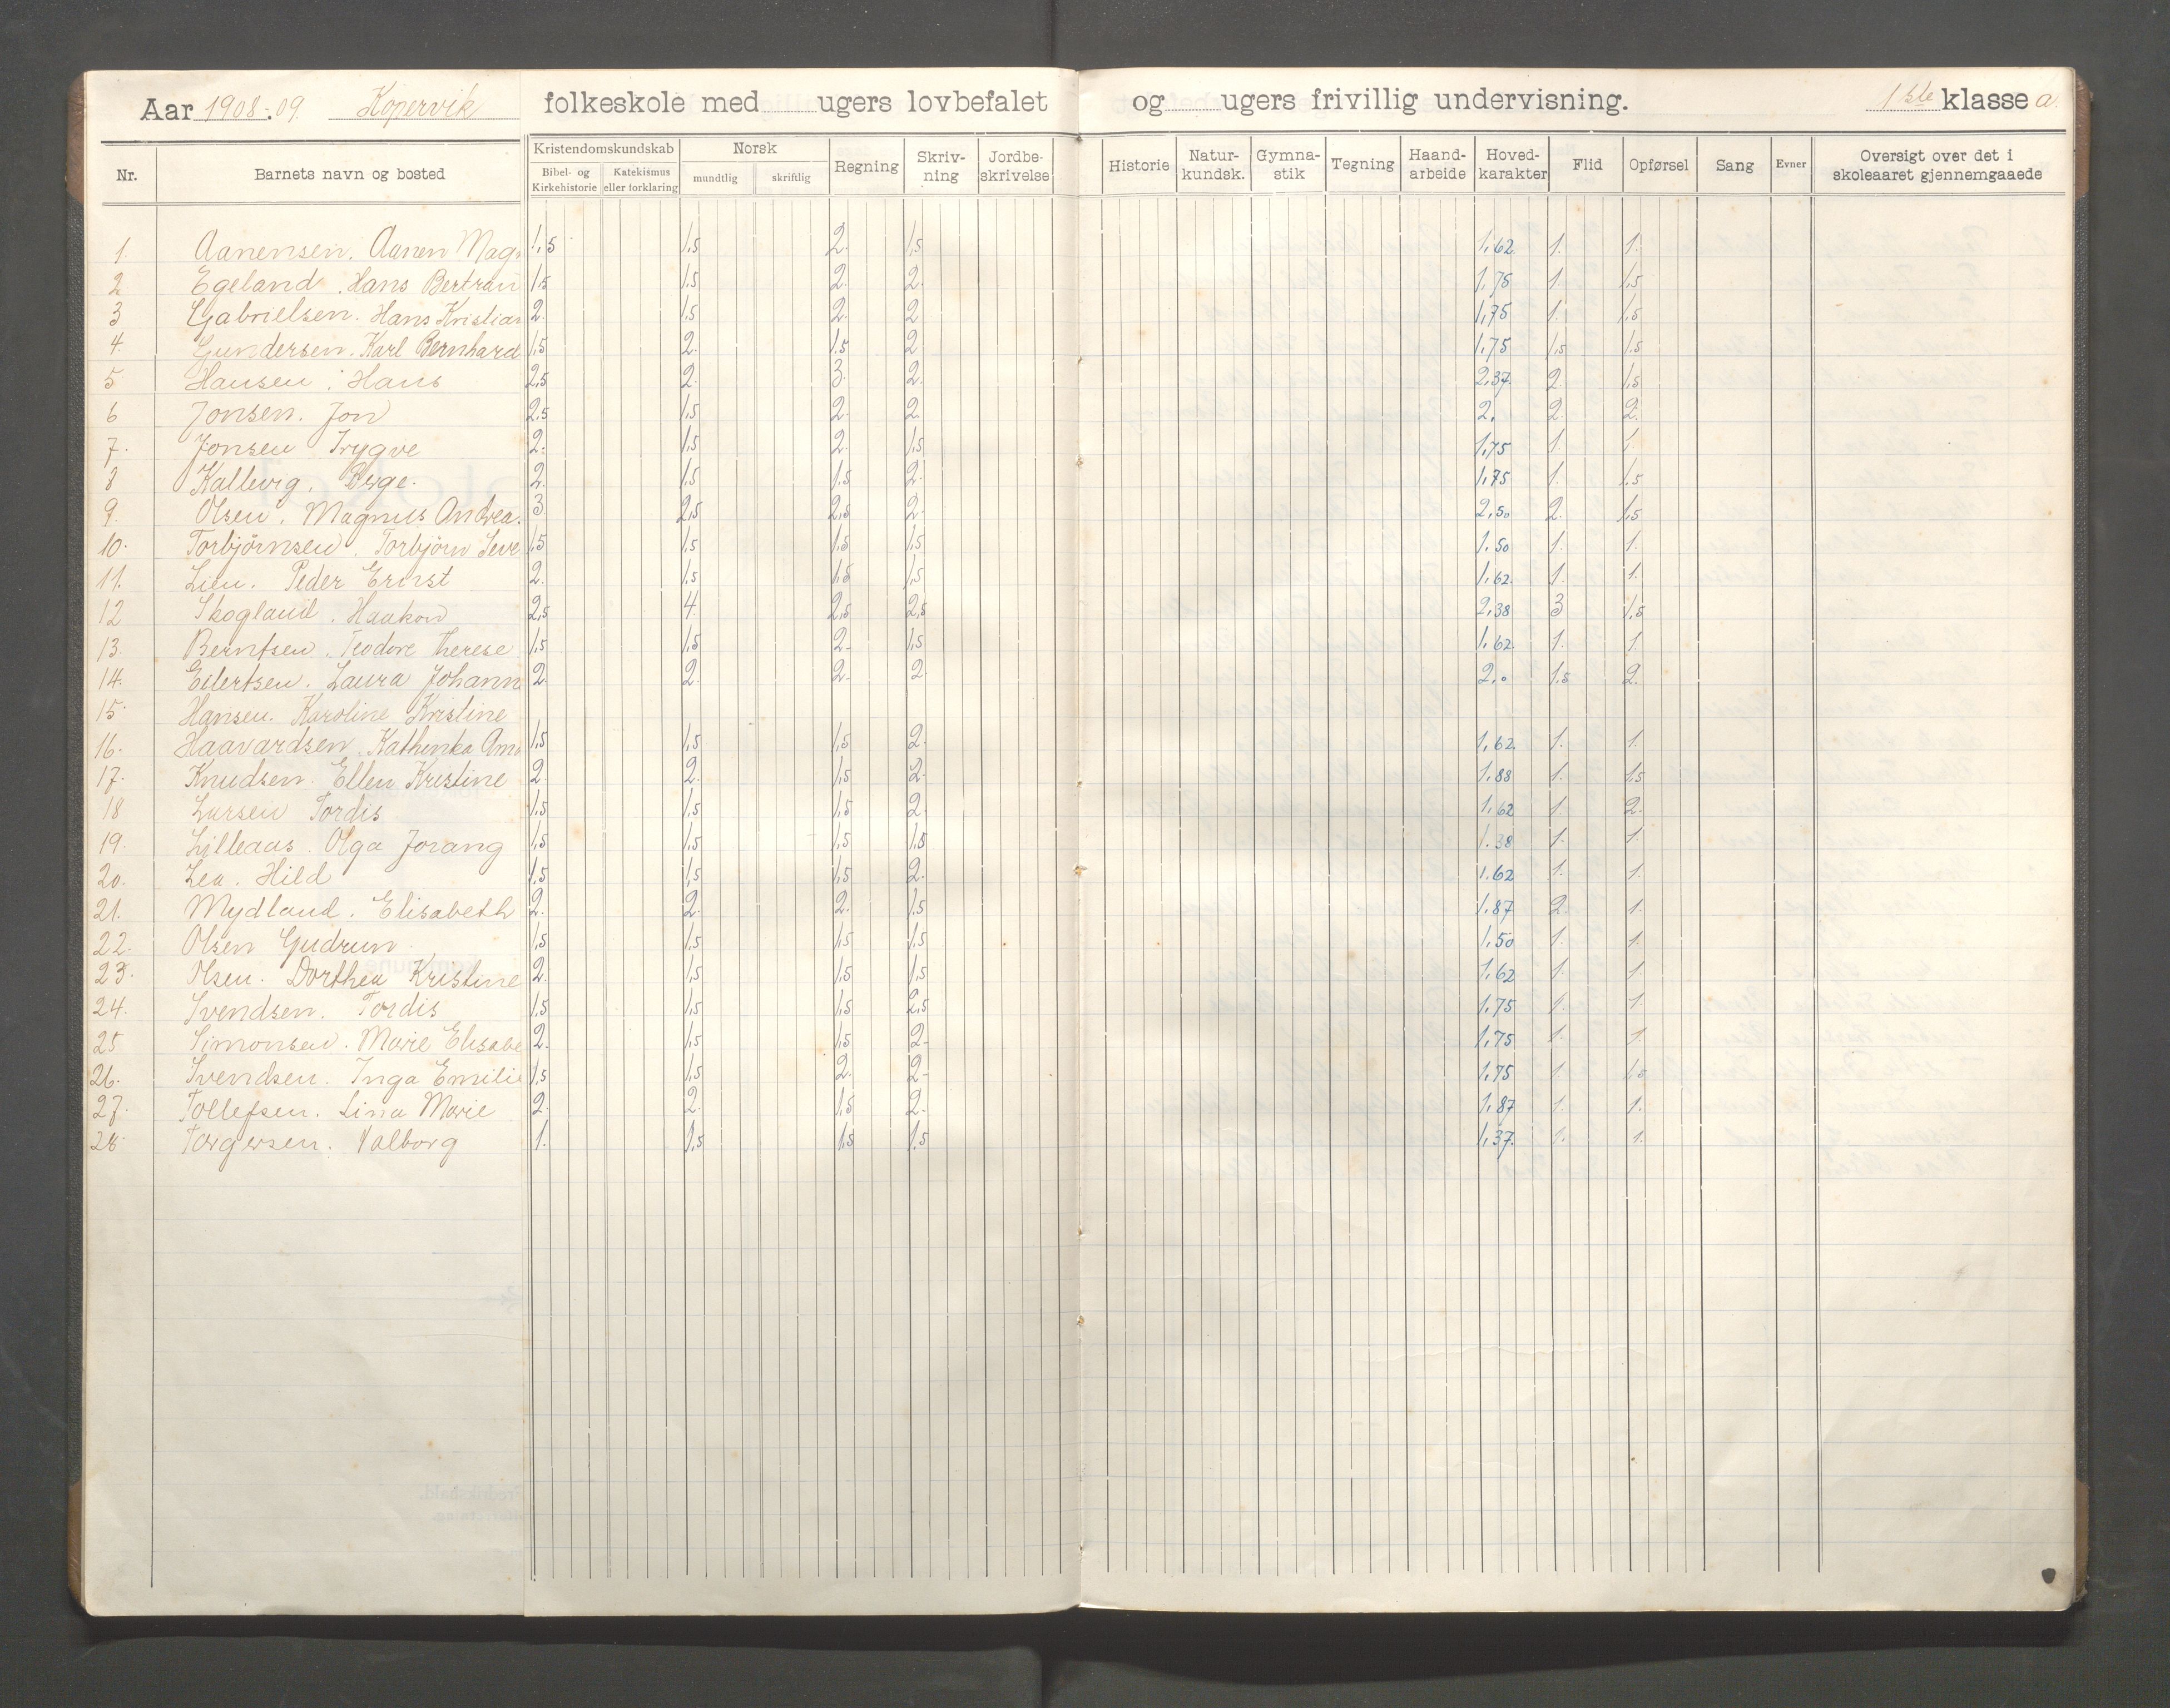 Aar 1908-09. Kopervik folkeskole med ugers lovbefalet og ugers frivillig undervisning. 1ste klasse a.
Nr. Barnets navn og bosted Kristendomskundskab Bibel- og Kirkehistorie Katekismus eller forklaring Norsk mundtlig skriftlig Regning Skriv-ning Jordbe-skrivelse Historie Natur-kundsk. Gymna-stik Tegning Haand-arbeide Hoved-karakter Flid Opførsel Sang Evner Oversigt over det i skoleaaret gjennemgaaede
1. Aanensen. Aanen Mag 1,5 1,5 2. 1,5 1,62. 1. 1.
2 Egeland. Hans Bertran 1,5 1,5 2. 2. 1,75 1. 1,5
3 Gabrielsen. Hans Kristian 2. 1,5 2. 2 1,75 1. 1,5
4. Gundersen. Karl Bernhard 1,5 2. 1,5 2 1,75 1,5 1,5
5 Hansen, Hans 2,5 2. 3. 2. 2,37. 2. 1,5
6 Jonsen. Jon 2,5 1,5 2. 2. 2. 2. 2.
7. Jonsen Trygve 2. 1,5 2. 1,5 1,75 1. 1.
8 Kallevig. Børge. 2. 1,5 1,5 2. 1,75 1. 1,5
9. Olsen. Magnus Andrea 3. 2,5 2,5 2. 2,50 2. 1,5
10. Torbjörnsen. Torbjörn Seve 1,5 1,5 1,5 1,5 1,50 1. 1.
11. Lien. Peder Ernst 2. 1,5 1,5 1,5 1,62. 1. 1.
12 Skogland. Haakon 2,5 4. 2,5 2,5 2,38 3 1,5
13. Berntsen. Teodore Therese 1,5 1,5 2. 1,5 1,62. 1. 1.
14. Eilertsen. Laura Johann 2. 2. 2. 2. 2,0 1,5 2.
15. Hansen. Karoline Kristine
16. Haavardsen. Kathinka Ama 1,5 1,5 1,5 2. 1,62. 1. 1.
17. Knudsen. Ellen Kristine 2. 2. 1,5 2. 1,88 1. 1,5
18 Larsen Tordis 1,5 1,5 1,5 2. 1,62 1. 2.
19. Lilleaas. Olga Jorang 1,5 1,5 1,5 1,5 1.38 1. 1.
20. Lea. Hild 1,5 1,5 1,5 2. 1.62 1. 1.
21. Mydland. Elisabeth 2. 2. 2. 1,5 1.87 2. 1.
22. Olsen Gudrun. 1,5 1,5 1,5 1,5 1,50 1. 1.
23. Olsen. Dorthea Kristine 2. 1,5 1,5 1,5 1,62 1. 1.
24. Svendsen. Tordis 1,5 1,5 1,5 2,5 1,75 1. 1.
25 Simonsen. Marie Elisabe 2. 1,5 1,5 2. 1,75 1. 1.
26. Svendsen. Inga Emilie 1,5 1,5 2. 2. 1,75 1 1,5
27. Tollefsen. Lina Marie 2. 2. 1,5 2. 1,87 1. 1.
28 Torgersen. Valborg 1. 1,5 1,5 1,5 1,37. 1. 1.